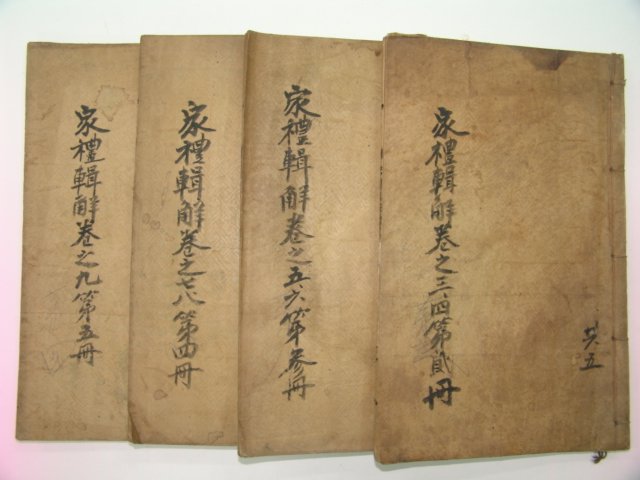 家禮輯解卷之三四第貳冊
共五
家禮輯解卷之五六第叅冊
家禮輯解卷之七八第四冊
家禮輯解卷之九第五冊